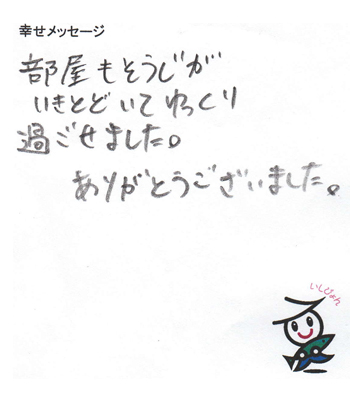 幸せメッセージ
部屋もそうじが
いきとどいてゆっくり
過ごせました。
ありがとうございました。
いしぴょん